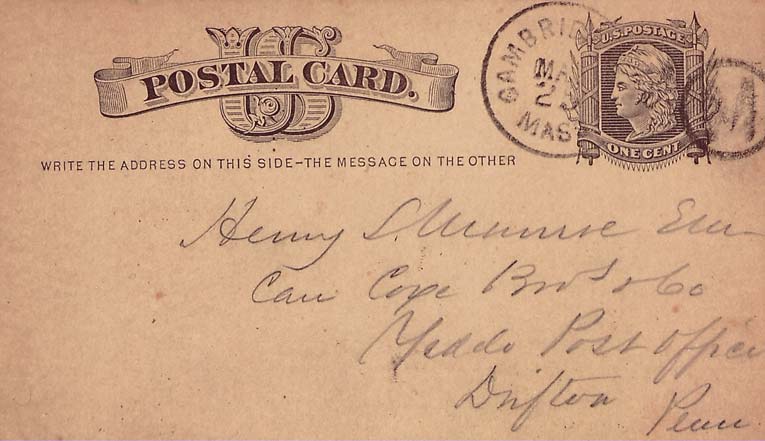 US
POSTAL CARD.
WRITE THE ADDRESS ON THIS SIDE–THE MESSAGE ON THE OTHER
CAMBRID
MA
2
MAS
U.S. POSTAGE
ONE CENT
Henry S. Munroe
Care Coxe Bros & Co
Yeddo Post Office
Drifton
Penn